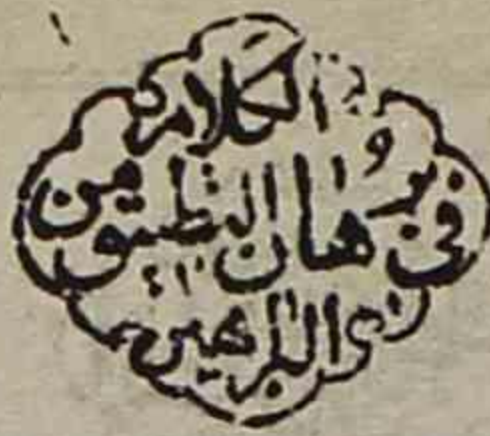 الكلام
في برهان التطبيق من
البراهين